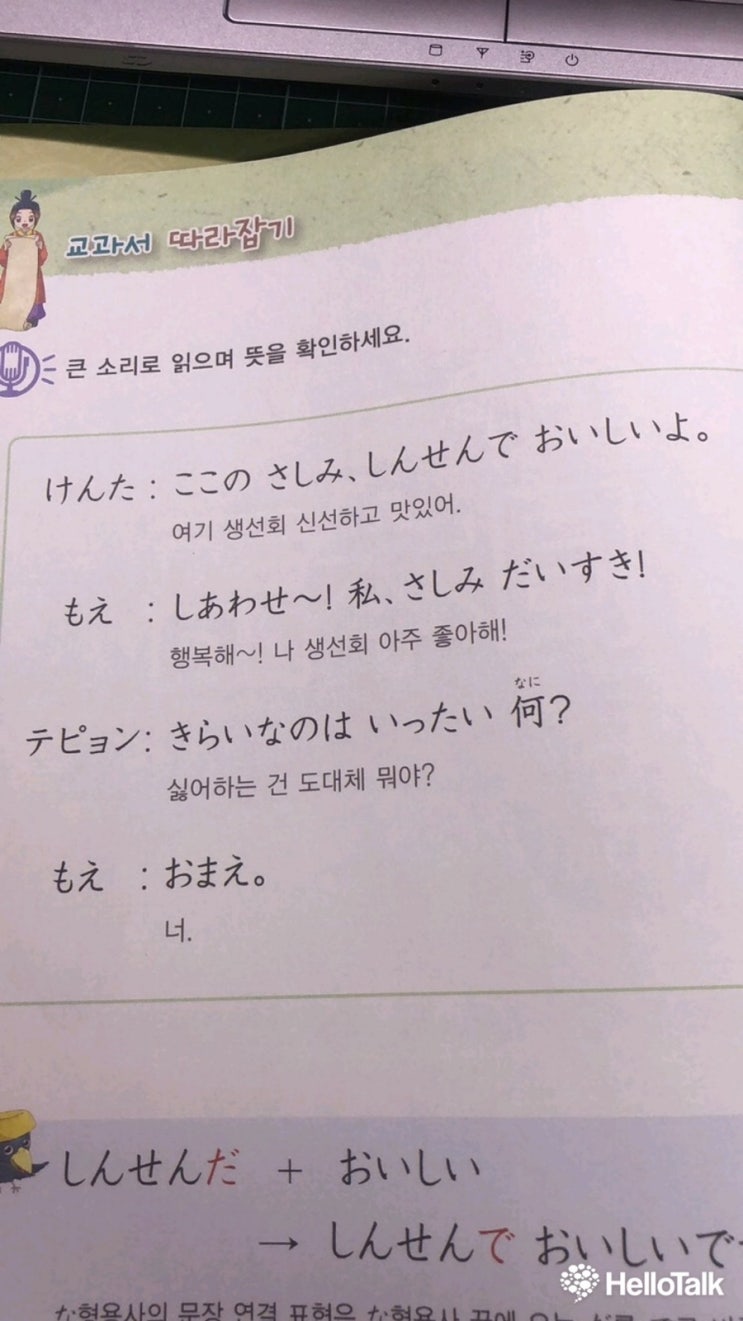 교과서 따라잡기
큰 소리로 읽으며 뜻을 확인하세요.
けんた : ここの さしみ、しんせんで おいしいよ。
여기 생선회 신선하고 맛있어.
もえ : しあわせ~! 私、さしみ だいすき!
행복해~! 나 생선회 아주 좋아해!
なに
テピョン: きらいなのは いったい 何?
싫어하는 건 도대체 뭐야?
もえ : おまえ。
너.
しんせんだ + おいしい
→ しんせんで おいしいで
HelloTalk
な형용사의 문장 연결 표현은 な형용사